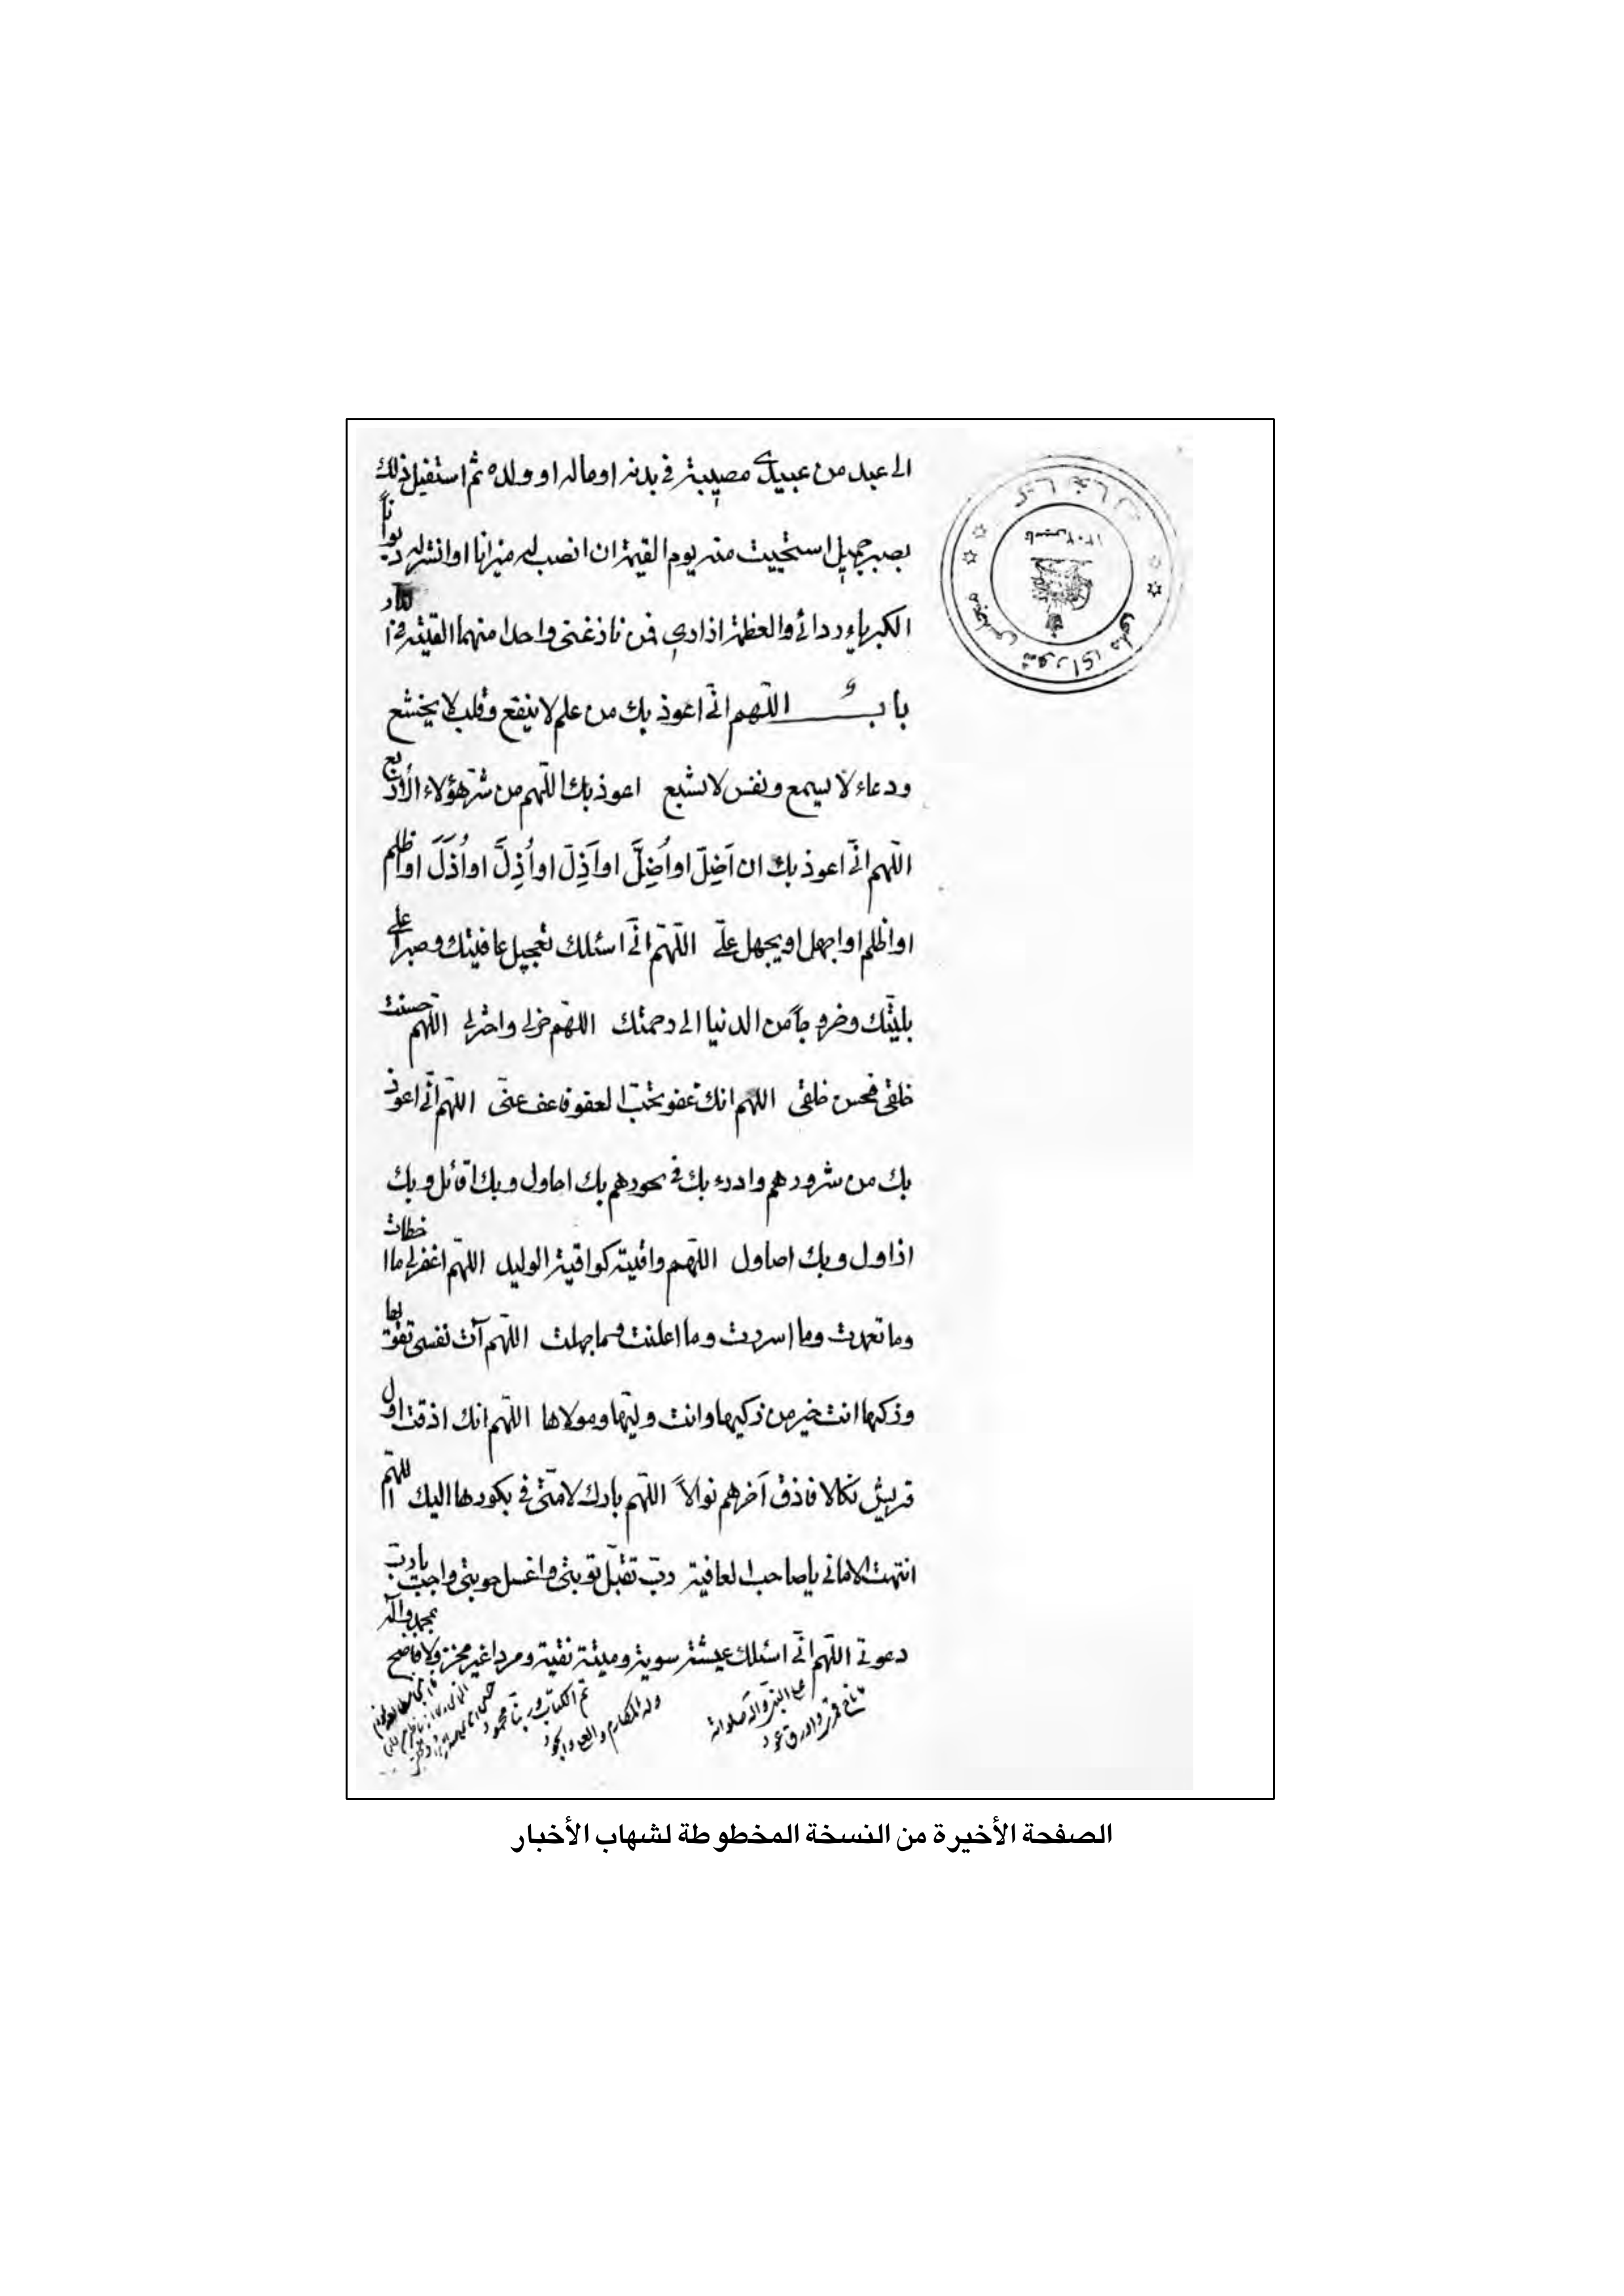 الى عبد من عبيدى مصيبة فى بدنه او ماله او ولده ثم استقبل ذلك
بصبر جميل استحييت منه يوم القيمة ان انصب له ميزانا او انشر له ديوانا
الكبرياء ردائى والعظمة ازارى فمن نازعنى واحدا منهما القيته فى النار
باب اللّهم انّى اعوذ بك من علم لا ينفع وقلب لا يخشع
ودعاء لا يسمع ونفس لا تشبع اعوذ بك اللّهم من شرّ هؤلاء الأربع
اللّهم انّى اعوذ بك ان اَضِلّ او اُضِلَّ او اَذِلّ او اُذِلَّ او اُذَلَّ او اظلم
او اظلم او اجهل او يجهل علىّ اللّهمّ انّى اسئلك تعجيل عافيتك وصبراً على
بليّتك وخروجاً من الدنيا الى رحمتك اللهّم خرلى واخترلى اللّهم حسنت
خلقى فحسن خلقى اللهم انك عفو تحبّ العفو فاعف عنّى اللّهم انّى اعوذ
بك من شرورهم وادرء بك فى نحورهم بك احاول وبك اقائل وبك
ازاول وبك اصاول اللّهم واقية كواقية الوليد اللّهم اغفرلى ما اخطات
وما تعمدت وما اسررت وما اعلنت وما جهلت اللّهم آت نفسى تقوٰیها
وزكها انت خير من زكيها وانت وليّها ومولاها اللّهم انك اذقت اول
قريش نكالا فاذق آخرهم نوالاً اللّهم بارك لامّتى فى بكورها اليك اللهم
انتهت الامانى يا صاحب العافية ربّ تقبّل توبتى واغسل حوبتى واجب يا ربّ
دعوتى اللّهم انّى اسئلك عيشة سوية وميتة نقية ومردا غير مخز ولا فاضح بمحمد وآله
تم الكتاب وربنا محمود
وله المكارم والعلى والجود
على النبى وآله صلواته
ما ناح قمرى واورق عود
كتابخانه
مجلس شوراى ملى
تاسيس ١٣٠٢
الصفحة الأخيرة من النسخة المخطوطة لشهاب الأخبار